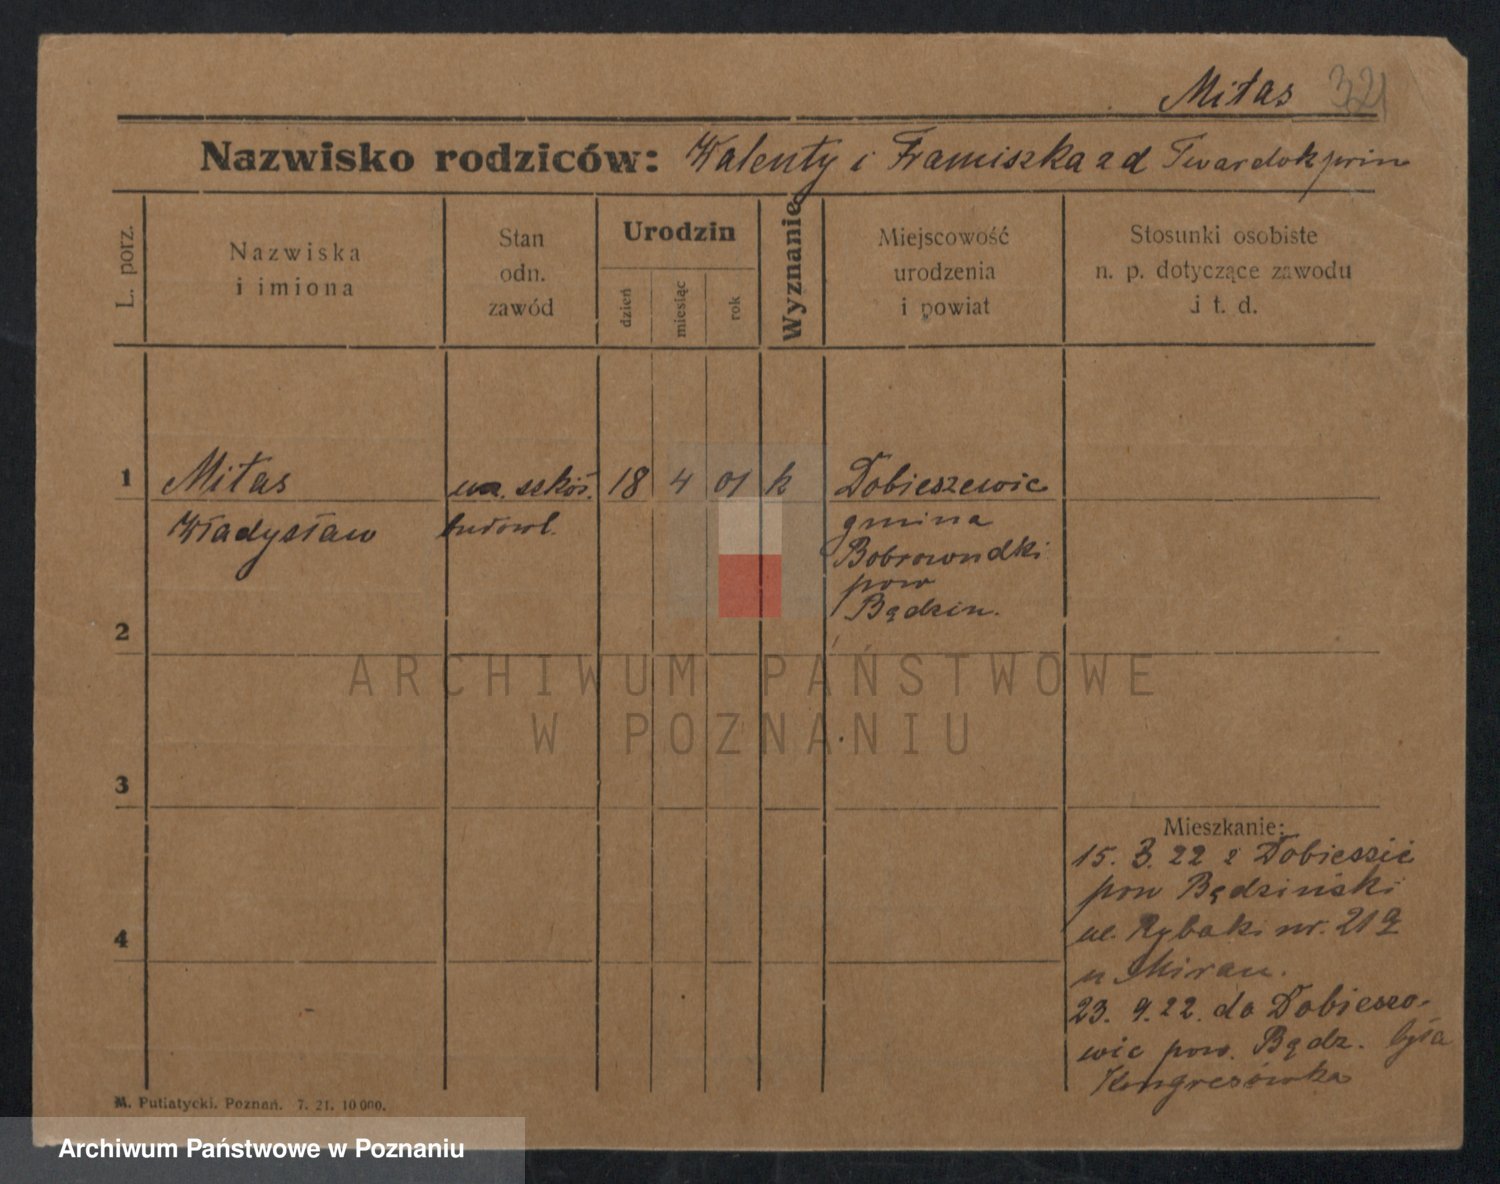 Mitas 321
Nazwisko rodziców: Walenty i Franciszka z d Twardokęs
L. porz.
Nazwiska
i imiona
Stan
odn.
zawód
Urodzin
dzień
miesiąc
rok
Wyznanie
Miejscowość
urodzenia
i powiat
Stosunki osobiste
n. p. dotyczące zawodu
i t. d.
1
Mitas
ucz. szkoł. 18 4 01 k
Dobieszewic
Władysław
budowl.
gmina
pow
Będzin.
2
ARCHIWUM PAŃSTWOWE
W POZNANIU
3
Mieszkanie:
15. 3. 22 z
pow Będziński
4
ul. Rybaki nr. 21a
u
23. 9. 22. do Dobieszo-
wic pow. Będz. była
Kongresówka
M. Putiatycki. Poznań. 7. 21. 10 000.
Archiwum Państwowe w Poznaniu